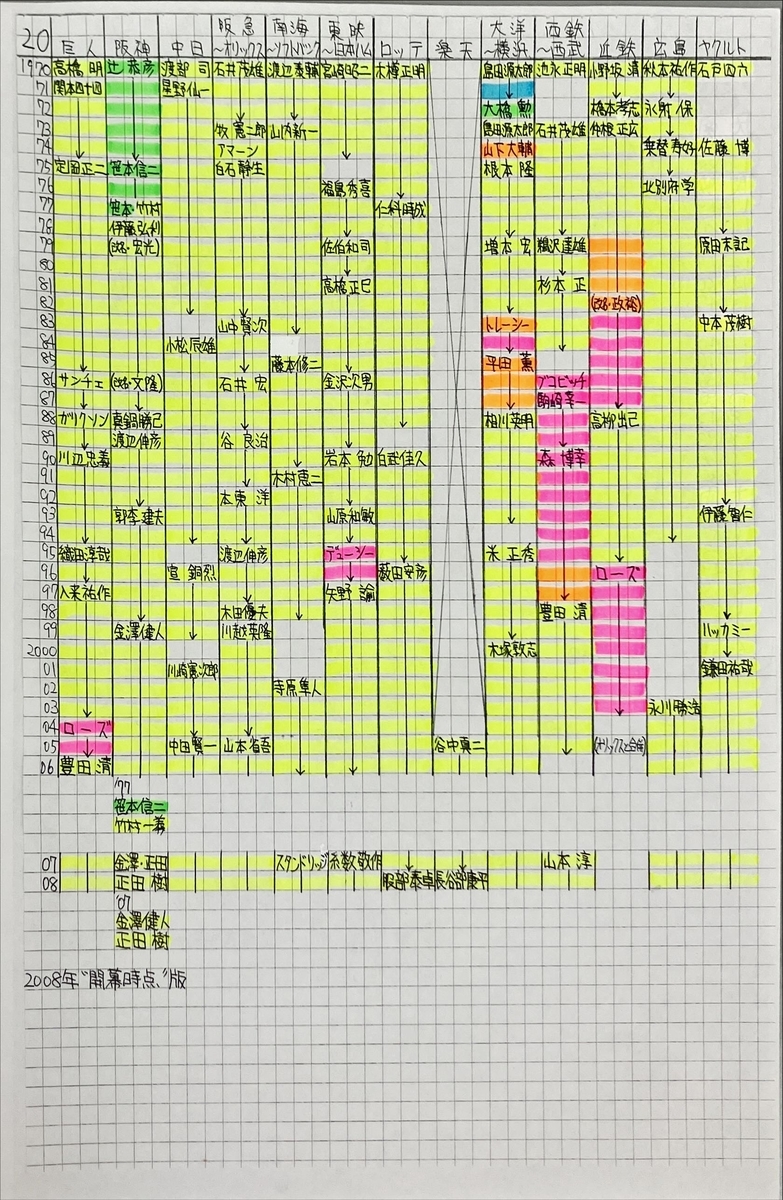 20 巨人 阪神 中日 阪急〜オリックス 南海〜ソフトバンク 東映〜日本ハム ロッテ 楽天 大洋〜横浜 西鉄〜西武 近鉄 広島 ヤクルト
1970 高橋 明 辻 恭彦 渡部 司 石井茂雄 渡辺泰輔 宮崎昭二 木樽正明 島田源太郎 池永正明 小野坂 清 秋本祐作 石戸四六
71 関本四十四 星野仙一
72 大橋 勲 橋本孝志 永射 保
73 牧 憲二郎 山内新一 島田源太郎 石井茂雄 仲根正広
74 アマーン 山下大輔 乗替寿好 佐藤 博
75 定岡正二 笹本信二 白石静生 根本 隆
76 福島秀喜 北別府学
77 笹本・竹村 仁科時成
78 伊藤弘利
79 (改名・宏光) 佐伯和司 増本 宏 鵜沢達雄 原田末記
80
81 高橋正巳 杉本 正
82 (改名・政裕)
83 山中賢次 トレーシー 中本茂樹
84 小松辰雄
85 藤本修二 平田 薫
86 サンチェ (改名・文隆) 石井 宏 金沢次男 ブコビッチ
87 駒崎幸一
88 ガリクソン 真鍋勝己 相川英明 高柳出己
89 渡辺伸彦 谷 良治
90 川辺忠義 岩本 勉 白武佳久 森 博幸
91 木村恵二
92 本東 洋
93 郭李建夫 山原和敏 伊藤智仁
94
95 織田淳哉 渡辺伸彦 デューシー 米 正秀
96 宣 銅烈 薮田安彦 ローズ
97 入来祐作 矢野 諭
98 木田優夫 豊田 清
99 金澤健人 川越英隆 ハッカミー
2000 木塚敦志
01 川崎憲次郎 鎌田祐哉
02 寺原隼人
03 永川勝浩
04 ローズ
05 中田賢一 山本省吾 谷中真二 (オリックスと合併)
06 豊田 清
'77
笹本信二
竹村一義
07 金澤・正田 スタンドリッジ 糸数敬作 山本 淳
08 正田 樹 服部泰卓 長谷部康平
'07
金澤健人
正田 樹
2008年“開幕時点”版